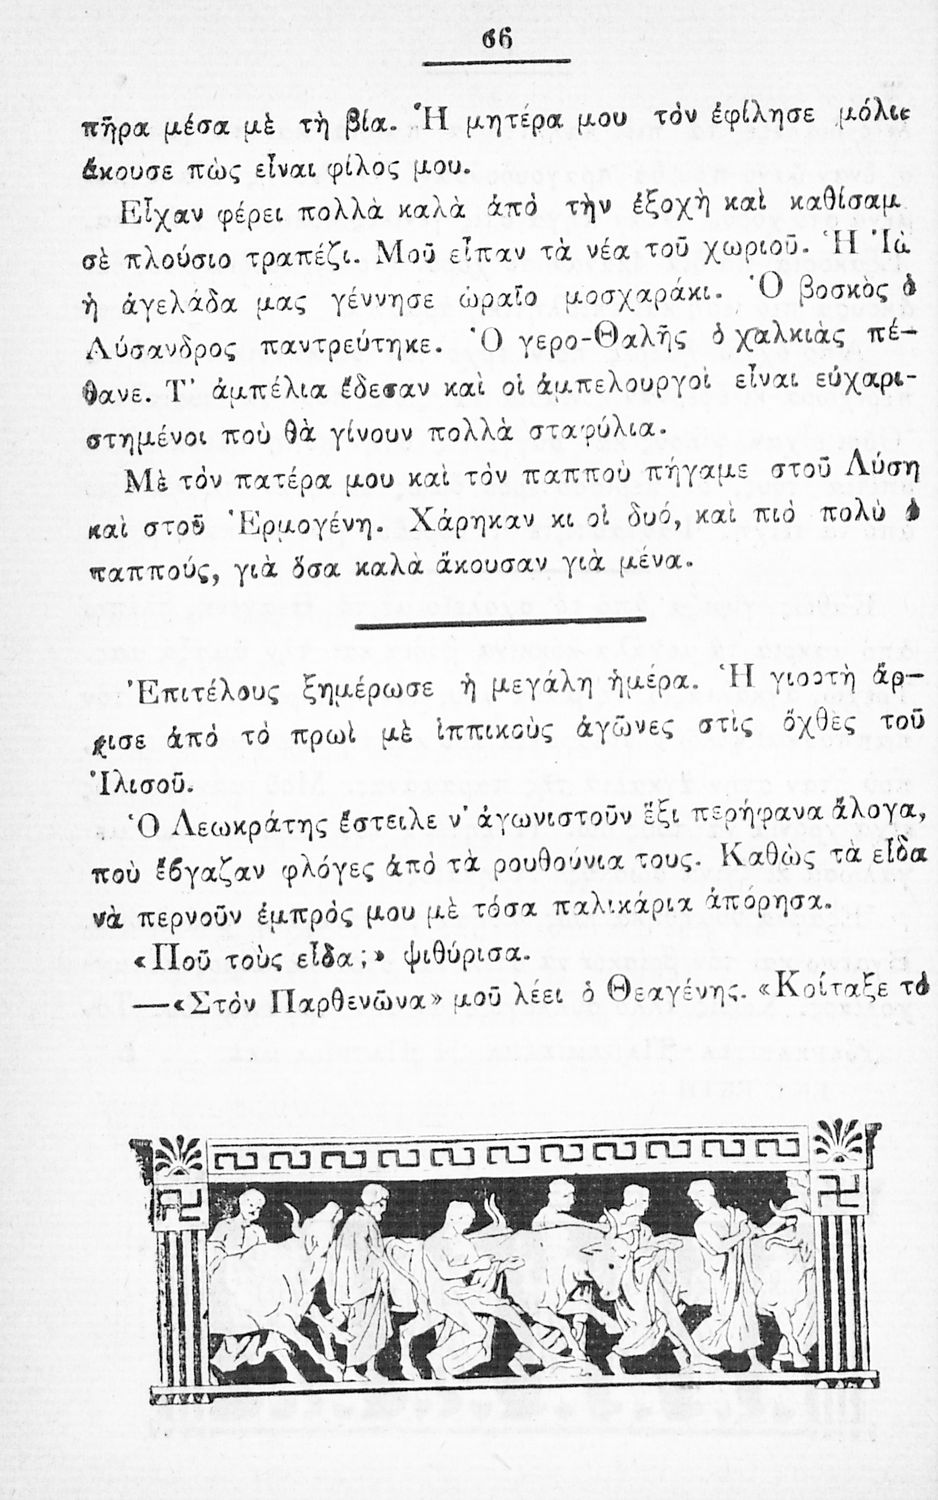 66
πῆρα μέσα μὲ τὴ βία. Ἡ μητέρα μου τὸν ἐφίλησε μόλις
ἄκουσε πὼς εἶναι φίλος μου.
Εἶχαν φέρει πολλὰ καλὰ ἀπὸ τὴν ἐξοχὴ καὶ καθίσαμ
σὲ πλούσιο τραπέζι. Μοῦ εἶπαν τὰ νέα τοῦ χωριοῦ. Ἡ Ἰὼ
ἡ ἀγελάδα μας γέννησε ὡραῖο μοσχαράκι. Ὁ βοσκὸς ὁ
Λύσανδρος παντρεύτηκε. Ὁ γερο-Θαλῆς ὁ χαλκιὰς πέ-
θανε. Τ' ἀμπέλια ἔδεσαν καὶ οἱ ἀμπελουργοὶ εἶναι εὐχαρι-
στημένοι ποὺ θὰ γίνουν πολλὰ σταφύλια.
Μὲ τὸν πατέρα μου καὶ τὸν παπποὺ πήγαμε στοῦ Λύση
καὶ στοῦ Ἑρμογένη. Χάρηκαν κι οἱ δυό, καὶ πιὸ πολὺ ὁ
παππούς, γιὰ ὅσα καλὰ ἄκουσαν γιὰ μένα.
Ἐπιτέλους ξημέρωσε ἡ μεγάλη ἡμέρα. Ἡ γιορτὴ ἄρ-
χισε ἀπὸ τὸ πρωὶ μὲ ἱππικοὺς ἀγῶνες στὶς ὄχθες τοῦ
Ἰλισοῦ.
Ὁ Λεωκράτης ἔστειλε ν' ἀγωνιστοῦν ἕξι περήφανα ἄλογα,
ποὺ ἔβγαζαν φλόγες ἀπὸ τὰ ρουθούνια τους. Καθὼς τὰ εἶδα
νὰ περνοῦν ἐμπρὸς μου μὲ τόσα παλικάρια ἀπόρησα.
«Ποῦ τοὺς εἶδα;» ψιθύρισα.
—«Στὸν Παρθενῶνα» μοῦ λέει ὁ Θεαγένης. «Κοίταξε τὸ